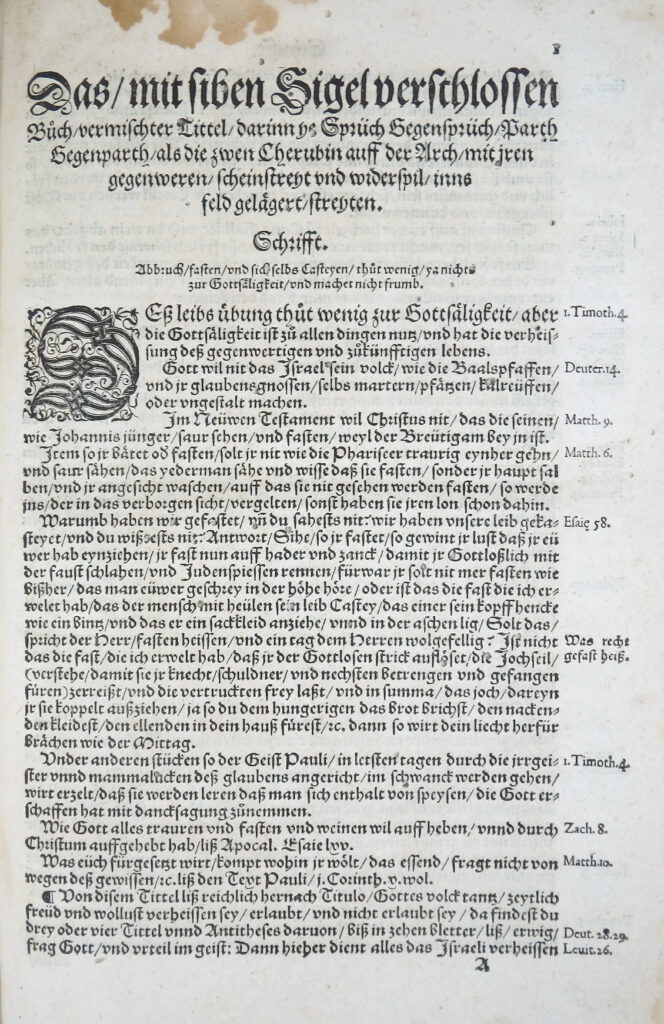 I
Das / mit siben Sigel verschlossen
Bůch / vermischter Tittel / darinn ye Sprüch Gegensprüch / Parth
Gegenparth / als die zwen Cherubin auff der Arch / mit jren
gegenweren / scheinstreyt vnd widerspil / inns
feld gelägert / streyten.
Schrifft.
Abbruch / fasten / vnd sich selbs Casteyen / thůt wenig / ya nichts
zur Gottsäligkeit / vnd machet nicht frumb.
DEß leibs übung thůt wenig zur Gottsäligkeit / aber 1. Timoth. 4.
die Gottsäligkeit ist zů allen dingen nutz / vnd hat die verheis-
sung deß gegenwertigen vnd zůkünfftigen lebens.
Gott wil nit das Israel sein volck / wie die Baalspfaffen / Deuter. 14.
vnd jr glaubensgnossen / selbs martern / pfätzen / kalreüffen /
oder vngestalt machen.
Im Neüwen Testament wil Christus nit / das die seinen / Matth. 9.
wie Johannis jünger / saur sehen / vnd fasten / weyl der Breütigam bey jn ist.
Item so jr bätet od fasten / solt jr nit wie die Phariseer traurig eynher gehn / Matth. 6.
vnd saur sähen / das yederman sähe vnd wisse daß sie fasten / sonder jr haupt sal
ben / vnd jr angesicht waschen / auff das sie nit gesehen werden fasten / so werde
jns / der in das verborgen sicht / vergelten / sonst haben sie jren lon schon dahin.
Warumb haben wir gefastet / vnd du sahests nit: wir haben vnsere leib geka- Esaie 58.
steyet / vnd du wißtests nit: Antwort / Sihe / so jr fastet / so gewint jr lust daß jr eü
wer hab eynziehen / jr fast nun auff hader vnd zanck / damit jr Gottloßlich mit
der faust schlahen / vnd Judenspiessen rennen / fürwar jr solt nit mer fasten wie
bißher / das man eüwer geschrey in der höhe höre / oder ist das die fast die ich er-
welet hab / das der mensch mit heülen sein leib Castey / das einer sein kopff hencke
wie ein bintz / vnd das er ein sackkleid anziehe / vnnd in der aschen lig / Solt das /
spricht der Herr / fasten heissen / vnd ein tag dem Herren wolgefellig: Ist nicht Was recht
das die fast / die ich erwelt hab / daß jr der Gottlosen strick auflöset / die Jochseil / gefast heiß.
(verstehe / damit sie jr knecht / schuldner / vnd nechsten betrengen vnd gefangen
füren) zerreißt / vnd die vertruckten frey laßt / vnd in summa / das joch / dareyn
jr sie koppelt außziehen / ja so du dem hungerigen das brot brichst / den nacken-
den kleidest / den ellenden in dein hauß fürest / ꝛc. dann so wirt dein liecht herfür
brächen wie der Mittag.
Vnder anderen stücken so der Geist Pauli / in letsten tagen durch die jrrgei- 1. Timoth. 4.
ster vnnd mammalucken deß glaubens angericht / im schwanck werden gehen /
wirt erzelt / daß sie werden leren daß man sich enthalt von speysen / die Gott er-
schaffen hat mit dancksagung zůnemmen.
Wie Gott alles trauren vnd fasten vnd weinen wil auff heben / vnnd durch Zach. 8.
Christum auffgehebt hab / liß Apocal. Esaie lxv.
Was eüch fürgesetzt wirt / kompt wohin jr wölt / das essend / fragt nicht von Matth. 10.
wegen deß gewissen / ꝛc. liß den Text Pauli / j. Corinth. x. wol.
¶ Von disem Tittel liß reichlich hernach Titulo / Gottes volck tantz / zeytlich
freüd vnd wollust verheissen sey / erlaubt / vnd nicht erlaubt sey / da findest du
drey oder vier Tittel vnnd Antitheses daruon / biß in zehen bletter / liß / erwig / Deut. 28. 29.
frag Gott / vnd vrteil im geist: Dann hieher dient alles das Israeli verheissen Leuit. 26.
A